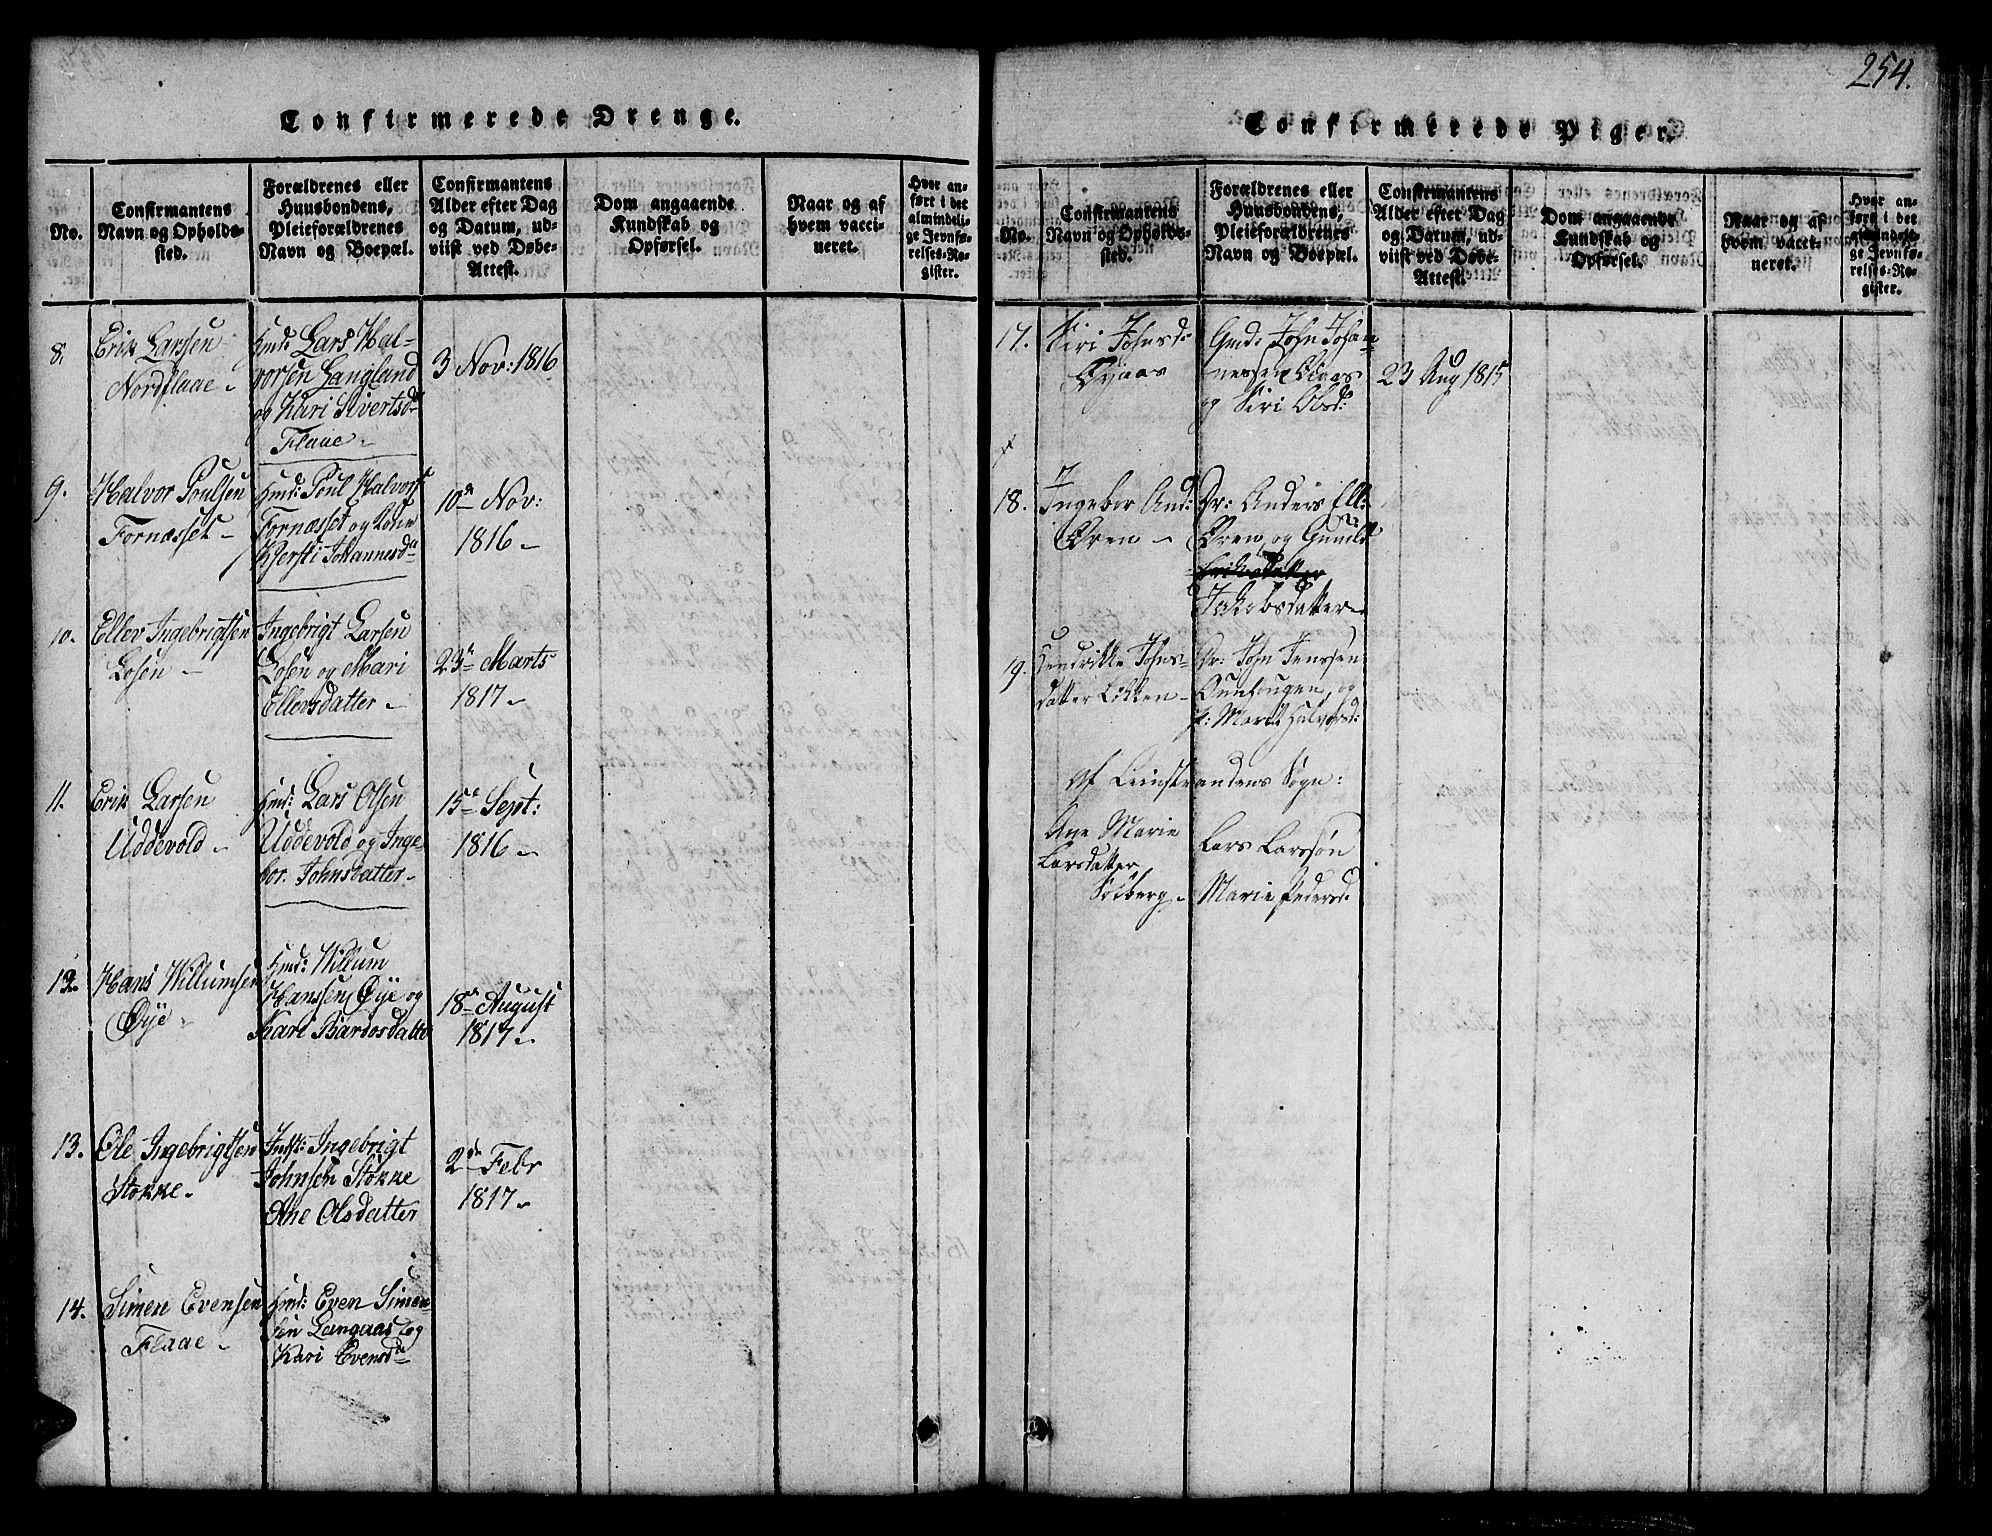 Confirmerede Drenge.
No.
Confirmantens
Navn og Opholds-
sted.
Forældrenes eller
Huusbondens,
Pleieforældrenes
Navn og Boepæl.
Confirmantens
Alder efter Dag
og Datum, ud-
viist ved Døbe-
Attest.
Dom angaaende
Kundskab og
Opførsel.
Naar og af
hvem vacci-
neret.
Hvor an-
ført i det
almindeli-
ge Jevnfø-
relses-Re-
gister.
8.
Erik Larssen
Nordflaae
Gmd: Lars Hal-
vorsen Langland
og Kari Sivertsd
Flaae
3 Nov: 1816
9.
Halvor Poulsen
Fornæsset
Gmd: Poul Halvors
Fornæsset og Kone
Kjersti Johannesd
10de Nov:
1816
10.
Ellev Ingebrigtsen
Losen
Ingebrigt Larsen
Losen og Mari
Ellevsdatter
23de Marts
1817
11.
Erik Larsen
Uddevold
Gmd: Lars Olsen
Uddevold og Inge-
bor. Johnsdatter
15de Sept:
1816
12.
Hans Willumsen
Øye
Gmd: Willum
Hanssen Øye og
Kari Bardosdatter
18de August
1817
13.
Ole Ingebrigtsen
Stokke
Inds: Ingebrigt
Johnsen Stokke
Ane Olsdatter
2de Febr
1817
14.
Simen Evensen
Flaae
Gmd: Even Simen-
sen Langaas og
Kari Evensd
254.
Confirmerede Piger.
No.
Confirmantens
Navn og Opholds-
sted.
Forældrenes eller
Huusbondens,
Pleieforældrenes
Navn og Boepæl.
Confirmantens
Alder efter Dag
og Datum, ud-
viist ved Døbe-
Attest.
Dom angaaende
Kundskab og
Opførsel.
Naar og af
hvem vacci-
neret.
Hvor an-
ført i det
almindeli-
ge Jevnfø-
relses-Re-
gister.
17.
Siri Johnsd:
Øyaas
Gmd: John Johan-
nessen Øyaas
og Siri Olsd:
23 Aug 1815
18.
Ingebor And:
Øren
Dr: Anders Ell:
Øren, og Gunild
Eriksdatter
Jakobsdatter
19.
Hendrikke Johns-
datter Løkken
Dr: John Jenssen
og
p: Marit Halvorsd:
Af Leinstrandens Sogn:
Ane Marie
Larsdatter
Solberg
Lars Larssøn
Marie Pedersd: